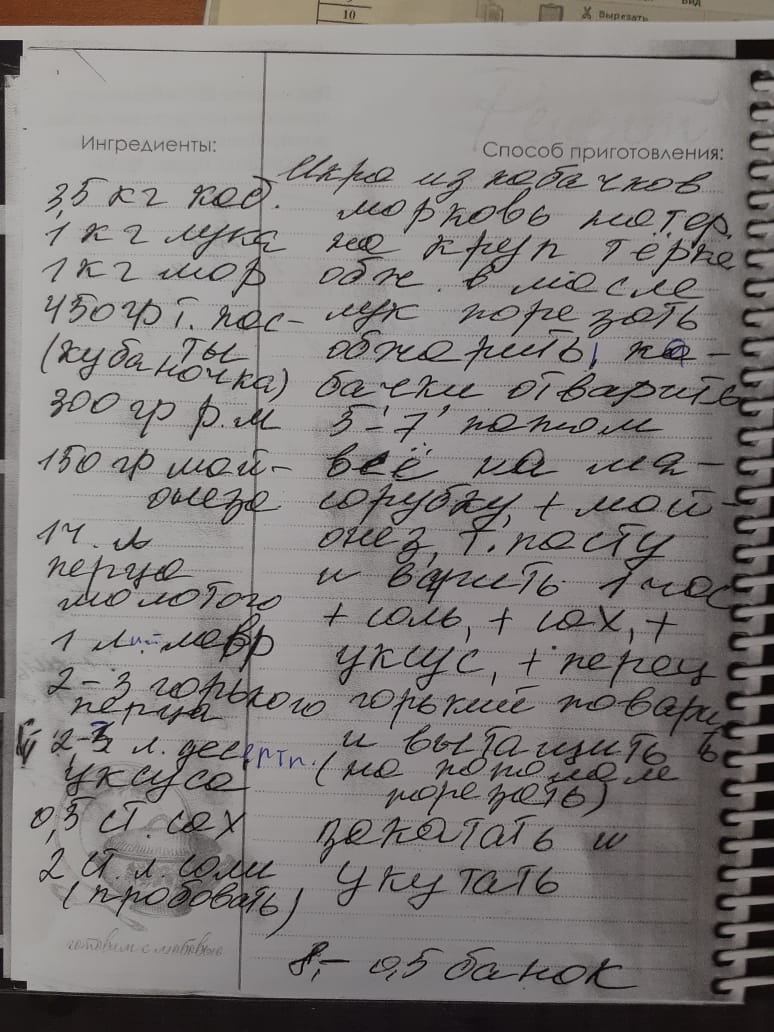 10
Вырезать
Ингредиенты:
3,5 кг каб.
1 кг лука
1 кг мор
450 гр т. пас-
ты
(кубаночка)
300 гр р.м
150 гр май-
онеза
1 ч. л
перца
молотого
1 лист лавр
2-3 горького
перца
2-3 л. десертн.
уксуса
0,5 ст. сах
2 ст. л. соли
(пробовать)
готовим с любовью
Способ приготовления:
Икра из кабачков
морковь натер.
на круп тёрке
обж. в масле
лук порезать
обжарить, ка-
бачки отварить
5-7' потом
всё на мя-
сорубку, + май-
онез, т. пасту
и варить 1 час
+ соль, + сах, +
уксус, + перец
горький повари
и вытащить ь
(на пополам
порезать)
закатать и
укутать
8,- 0,5 банок